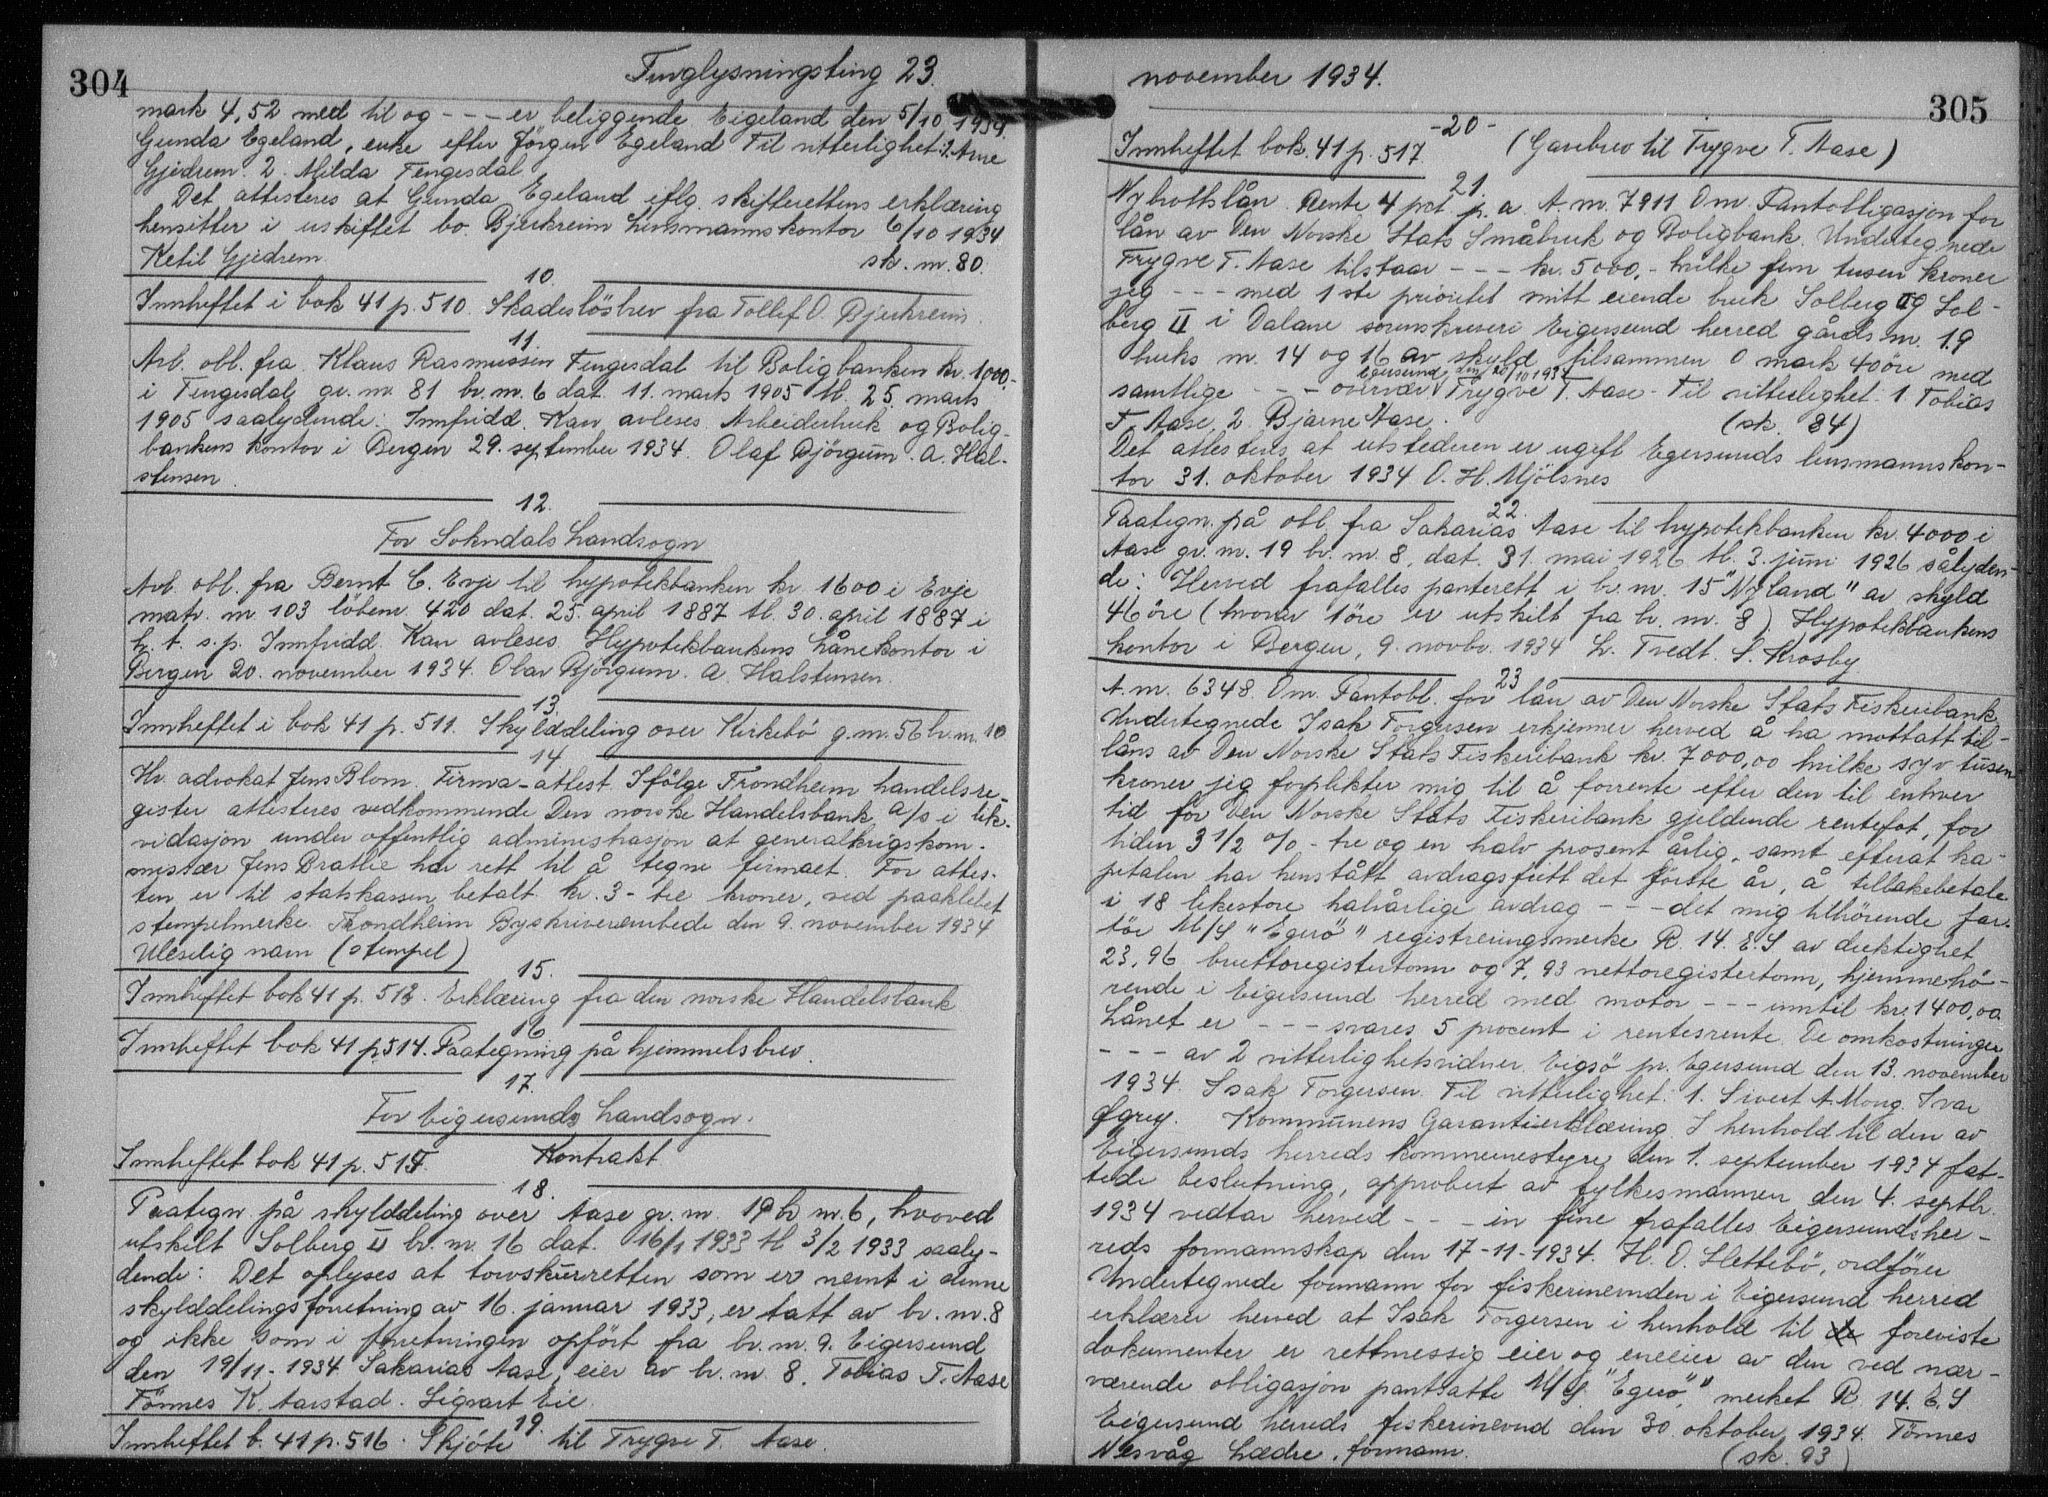 304
Tinglysningsting 23.
mark 4,52 med til og - - - er beliggende Eigeland den 5/10 1934.
Gunda Egeland, enke efter Jörgen Egeland Til vitterlighet: 1. Arne
Gjedrem. 2. Milda Fengesdal
Det attesteres at Gunda Egeland iflg. skifterettens erklæring
hensitter i uskiftet bo. Bjerkreim lensmannskontor 6/10 1934
Ketil Gjedrem sk. m. 80.
10.
Innheftet i bok 41 p. 510. Skadeslösbrev fra Tollef O. Bjerkreim.
11.
Avl. obl. fra Klaus Rasmussen Fengesdal til Boligbanken kr. 1000,-
i Fengesdal gr. nr. 81 br. nr. 6 dat. 11. marts 1905 tl. 25. marts
1905 saalydende: Innfridd. Kan avleses Arbeiderbruk og Bolig-
bankens kontor i Bergen 29. september 1934. Olaf Björgum. A. Hal-
stensen.
12.
For Sokndals Landsogn
Avl. obl. fra Bernt C. Evje til hypotekbanken kr. 1600 i Evje
matr. nr 103 löbenr. 420 dat. 25. april 1887 tl. 30. april 1887 i
h. t. s. p. Innfridd. Kan avleses. Hypotekbankens Lånekontor i
Bergen 20. november 1934. Olav Björgum. A. Halstensen.
13.
Innheftet i bok 41 p. 511. Skylddeling over Kirkebö g.nr. 56 br.nr. 10
14
Hr. advokat Jens Blom. Firma-attest. Ifölge Trondheim handelsre-
gister attesteres vedkommende Den norske Handelsbank A/S i lik-
vidasjon under offentlig administrasjon at generalkrigskom-
missær Jens Bratlie har rett til å tegne firmaet. For attes-
ten er til statskassen betalt kr. 3- tre kroner, ved paaklebet
stempelmerke. Trondheim Byskriverembede den 9. november 1934
Uleselig navn (stempel)
15.
Innheftet bok 41 p. 512. Erklæring fra den norske Handelsbank
16
Innheftet bok 41 p. 514. Paategning på hjemmelsbrev.
17.
For Eigersunds Landsogn.
Innheftet bok 41 p. 515. Kontrakt
18.
Paategn. på skylddeling over Aase gr. nr. 19 br nr. 6, hvoved
utskilt Solberg II br. nr. 16 dat. 16/1 1933 tl 3/2 1933 saaly-
dende: Det oplyses at torvskurretten som er nevnt i denne
skylddelingsforretning av 16. januar 1933, er tatt av br. nr. 8
og ikke som i forretningen opfört fra br. nr. 9. Eigersund
den 19/11-1934 Sakarias Aase, eier av br. nr. 8. Tobias T. Aase
Tönnes K. Aarstad. Sigvart Eie.
19.
Innheftet b. 41 p. 516. Skjöte til Trygve T. Aase.
november 1934.
305
-20-
Innheftet bok. 41 p. 517. (Gavebrev til Trygve T. Aase)
21.
Nybrottslån. Rente 4 pct. p. a. A. nr. 7911 Om. Pantobligasjon for
lån av Den Norske Stats Småbruk og Boligbank. Undertegnede
Trygve T. Aase tilstaar - - - kr. 5000,- hvilke fem tusen kroner
jeg - - - med 1ste prioritet mitt eiende bruk Solberg og Sol-
berg II i Dalane sorenskriveri Eigersund herred gårds nr. 19
bruks nr. 14 og 16 av skyld tilsammen 0 mark 40 öre med
samtlige - - - overvær Egersund den 20/10 193 Trygve T. Aase. Til vitterlighet: 1 Tobias
T. Aase, 2. Bjarne Aase. (sk. 84)
Det attesteres at utstederen er ugift Egersunds lensmannskon-
tor 31. oktober 1934 O. H. Mjölsnes
22.
Paategn. på obl. fra Sakarias Aase til hypotekbanken kr. 4000 i
Aase gr. nr. 19 br. nr. 8, dat. 31. mai 1926 tl. 3. juni 1926 sålyden-
de: Herved frafalles panterett i br. nr. 15 "Nyland" av skyld
46 öre (hvorav 1 öre er utskilt fra br. nr. 8) Hypotekbankens
kontor i Bergen, 9. novbr. 1934 L. Tvedt. S. Krosby
23
A. nr. 6348. Om. Pantobl. for lån av Den Norske Stats Fiskeribank
Undertegnede Isak Torgersen erkjenner herved å ha mottatt til-
låns av Den Norske Stats Fiskeribank kr. 7000,00 hvilke syv tusen
kroner jeg forplikter mig til å forrente efter den til enhver
tid for Den Norske Stats Fiskeribank gjeldende rentefot, for
tiden 3 1/2 % - tre og en halv prosent årlig, samt efterat ka-
pitalen har henstått avdragsfritt det förste år, å tilbakebetale
i 18 likestore halvårlige avdrag - - - det mig tilhörende far-
töi M/S "Egerö" registreringsmerke R. 14. E.S av drektighet
23,96 bruttoregistertonn og 7,93 nettoregistertonn, hjemmehö-
rende i Eigersund herred med motor - - - inntil kr. 1400,00.
Lånet er - - - svares 5 procent i rentesrente. De omkostninger
- - - av 2 vitterlighetsvidner Eigö pr. Egersund den 13. november
1934. Isak Torgersen. Til vitterlighet: 1. Sivert A. Mong. Ivar
Kommunens Garantierklæring. I henhold til den av
Eigersunds herreds kommunestyre den 1. september 1934 fat-
tede beslutning, approbert av fylkesmannen den 4. septbr.
1934 vedtar herved - - - in fine frafalles Eigersunds her-
reds formannskap den 17-11-1934. H. O. Hettebö, ordförer
Undertegnede formann for fiskerinevnden i Eigersund herred
erklærer herved at Isak Torgersen i henhold til foreviste
dokumenter er rettmessig eier og eneeier av den ved nær-
værende obligasjon pantsatte M/S. "Egerö", merket R. 14. E.S
Eigersund herreds fiskerinevnd den 30. oktober 1934. Tönnes
Nesvåg Lædre, formann. (sk. 93)